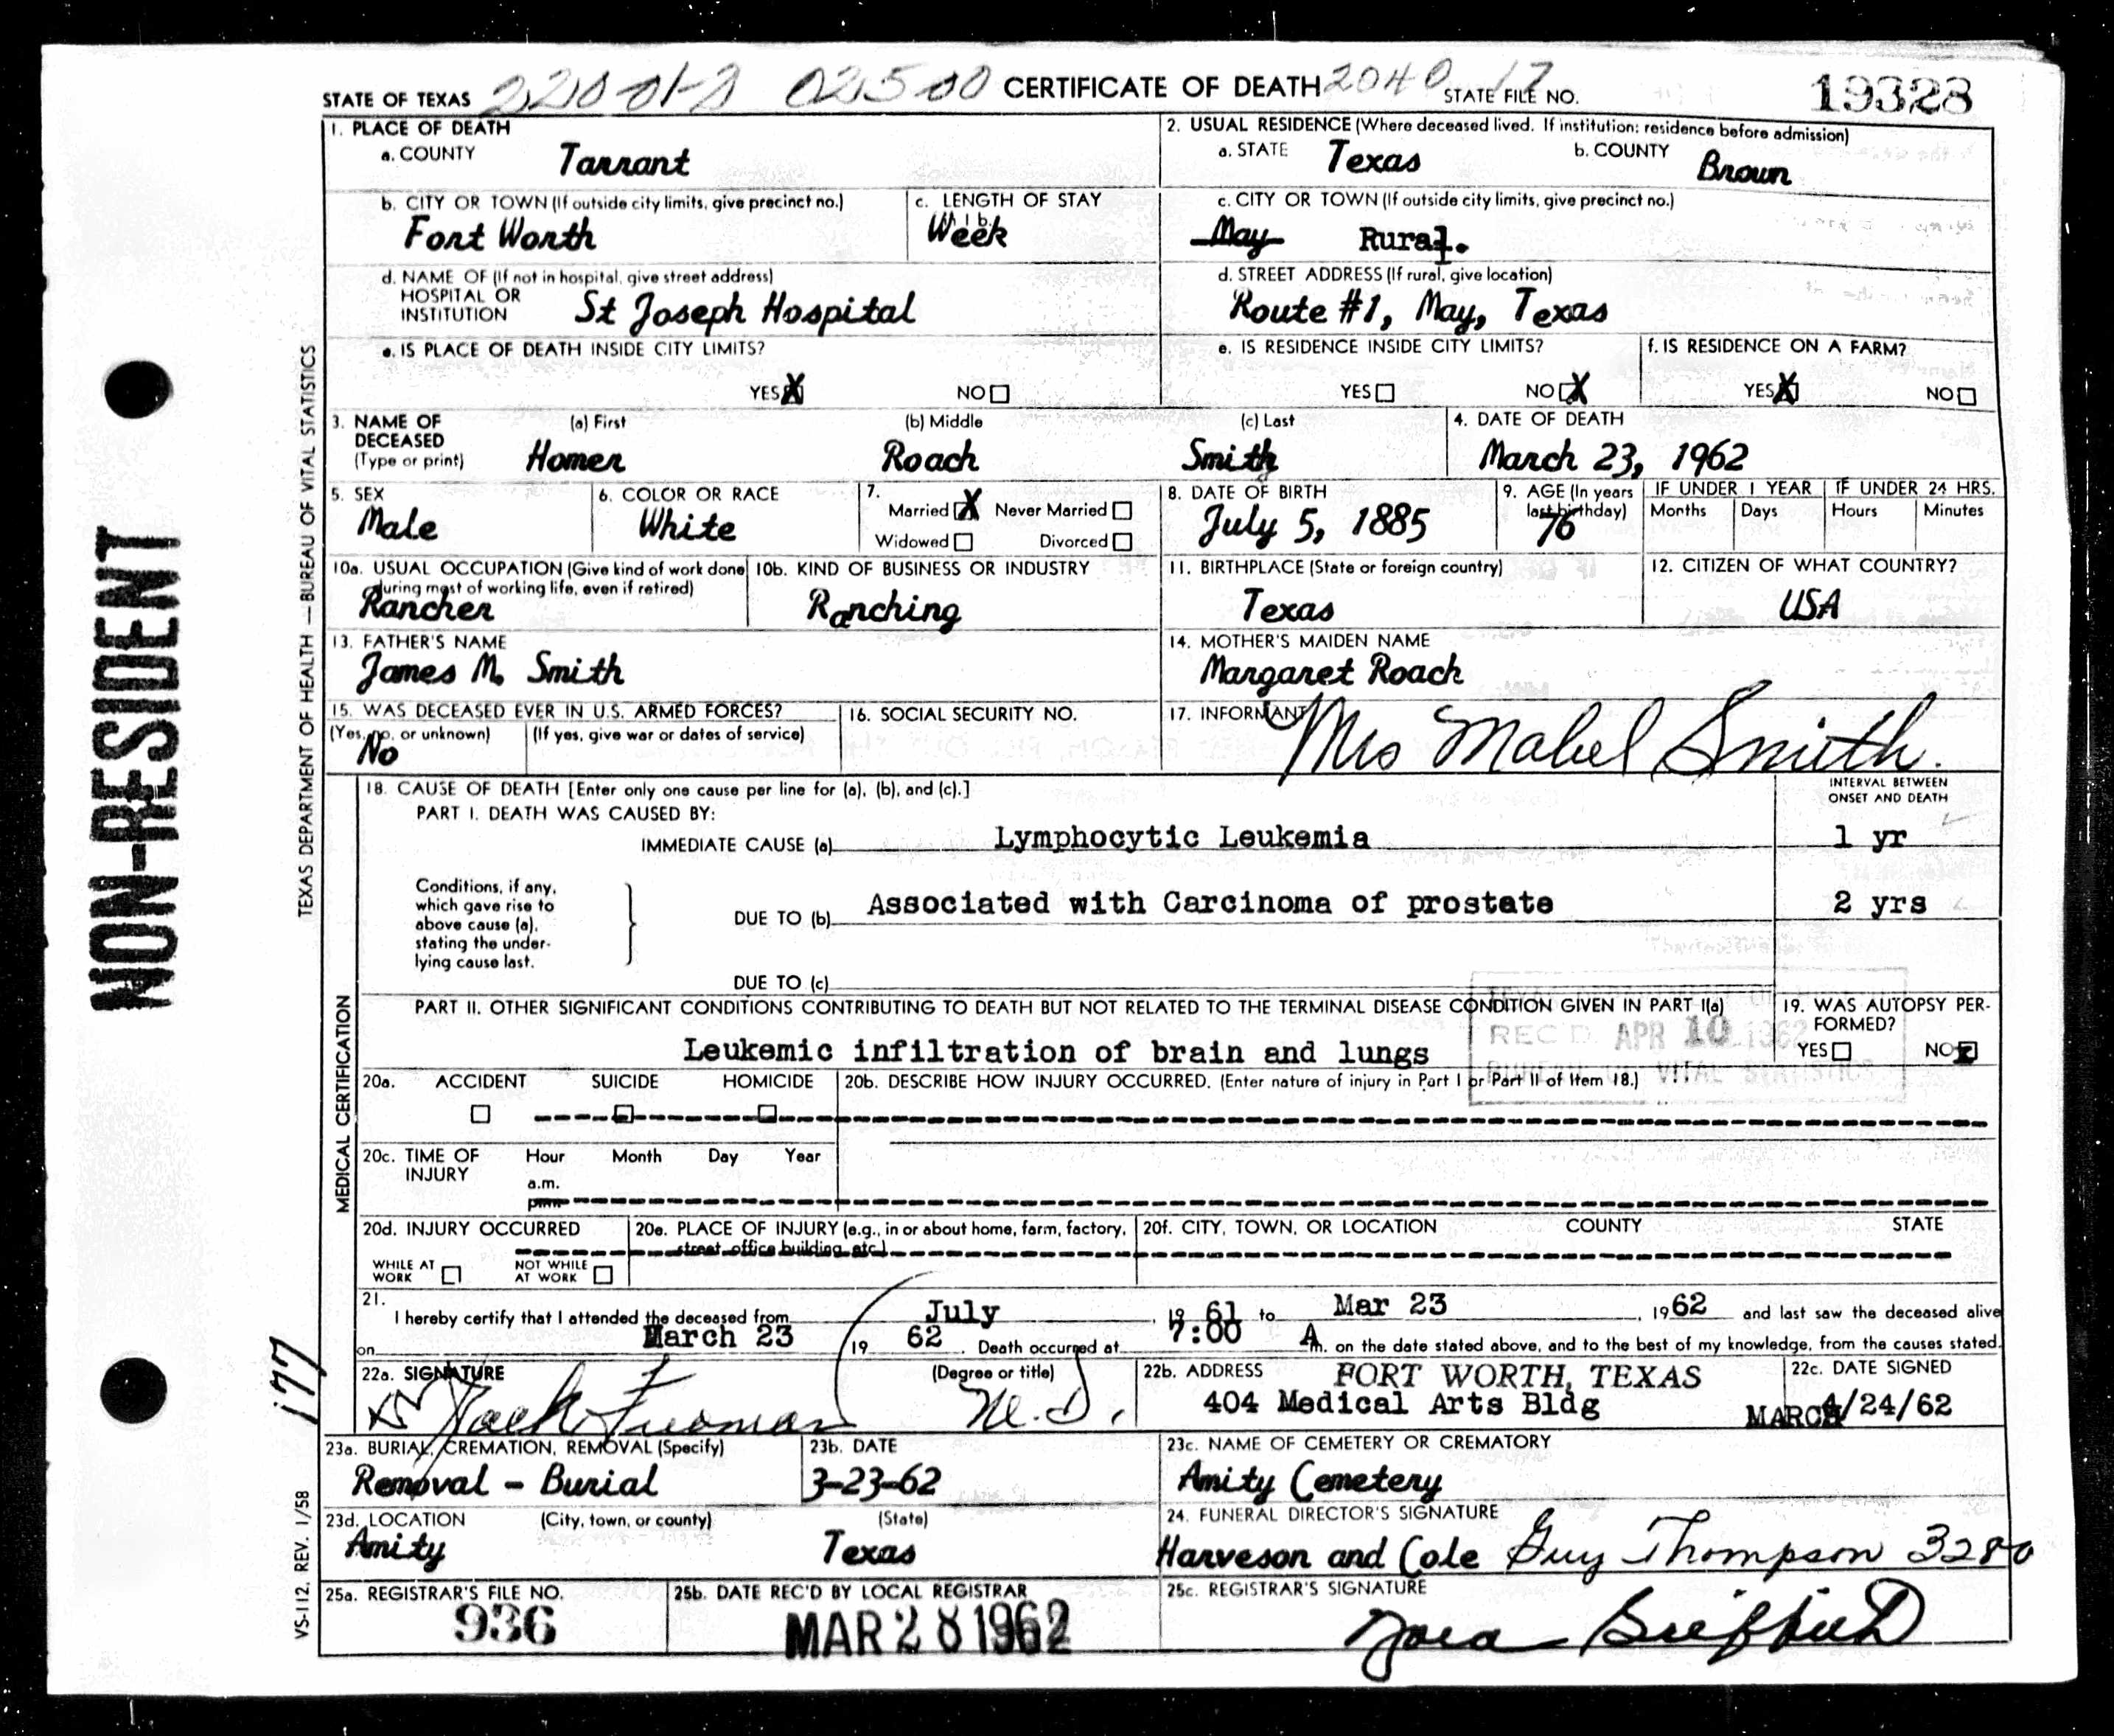 STATE OF TEXAS 220-01-2 02500 CERTIFICATE OF DEATH 2040 17 STATE FILE NO. 19328
1. PLACE OF DEATH
a. COUNTY Tarrant
2. USUAL RESIDENCE (Where deceased lived. If institution: residence before admission)
a. STATE Texas b. COUNTY Brown
b. CITY OR TOWN (If outside city limits, give precinct no.) Fort Worth
c. LENGTH OF STAY Week
c. CITY OR TOWN (If outside city limits, give precinct no.)
May Rural.
d. NAME OF (If not in hospital, give street address)
HOSPITAL OR
INSTITUTION St Joseph Hospital
d. STREET ADDRESS (If rural, give location)
Route #1, May, Texas
e. IS PLACE OF DEATH INSIDE CITY LIMITS?
YES X NO
e. IS RESIDENCE INSIDE CITY LIMITS?
YES NO X
f. IS RESIDENCE ON A FARM?
YES X NO
3. NAME OF
DECEASED
(Type or print)
(a) First (b) Middle (c) Last
Homer Roach Smith
4. DATE OF DEATH
March 23, 1962
5. SEX
Male
6. COLOR OR RACE
White
7.
Married X Never Married
Widowed Divorced
8. DATE OF BIRTH
July 5, 1885
9. AGE (In years
last birthday)
76
IF UNDER 1 YEAR IF UNDER 24 HRS.
Months Days Hours Minutes
10a. USUAL OCCUPATION (Give kind of work done
during most of working life, even if retired)
Rancher
10b. KIND OF BUSINESS OR INDUSTRY
Ranching
11. BIRTHPLACE (State or foreign country)
Texas
12. CITIZEN OF WHAT COUNTRY?
USA
13. FATHER'S NAME
James M. Smith
14. MOTHER'S MAIDEN NAME
Margaret Roach
15. WAS DECEASED EVER IN U.S. ARMED FORCES?
(Yes, no, or unknown) (If yes, give war or dates of service)
No
16. SOCIAL SECURITY NO.
17. INFORMANT
Mrs Mabel Smith.
18. CAUSE OF DEATH [Enter only one cause per line for (a), (b), and (c).]
INTERVAL BETWEEN
ONSET AND DEATH
PART I. DEATH WAS CAUSED BY:
IMMEDIATE CAUSE (a) Lymphocytic Leukemia 1 yr
Conditions, if any,
which gave rise to
above cause (a),
stating the under-
lying cause last.
DUE TO (b) Associated with Carcinoma of prostate 2 yrs
DUE TO (c)
PART II. OTHER SIGNIFICANT CONDITIONS CONTRIBUTING TO DEATH BUT NOT RELATED TO THE TERMINAL DISEASE CONDITION GIVEN IN PART I(a)
Leukemic infiltration of brain and lungs
REC'D APR 10 1962
BUREAU OF VITAL STATISTICS
19. WAS AUTOPSY PER-
FORMED?
YES NO X
20a. ACCIDENT SUICIDE HOMICIDE
20b. DESCRIBE HOW INJURY OCCURRED. (Enter nature of injury in Part I or Part II of Item 18.)
20c. TIME OF
INJURY
Hour Month Day Year
a.m.
p.m.
20d. INJURY OCCURRED
WHILE AT
WORK
NOT WHILE
AT WORK
20e. PLACE OF INJURY (e.g., in or about home, farm, factory,
street, office building, etc.)
20f. CITY, TOWN, OR LOCATION COUNTY STATE
21.
I hereby certify that I attended the deceased from July, 19 61 to Mar 23, 1962 and last saw the deceased alive
on March 23 19 62. Death occurred at 7:00 A m. on the date stated above, and to the best of my knowledge, from the causes stated.
22a. SIGNATURE (Degree or title)
Jack Furman M.D.
22b. ADDRESS FORT WORTH, TEXAS
404 Medical Arts Bldg
22c. DATE SIGNED
MARCH /24/62
23a. BURIAL, CREMATION, REMOVAL (Specify)
Removal - Burial
23b. DATE
3-23-62
23c. NAME OF CEMETERY OR CREMATORY
Amity Cemetery
23d. LOCATION (City, town, or county) (State)
Amity Texas
24. FUNERAL DIRECTOR'S SIGNATURE
Harveson and Cole Guy Thompson 3280
25a. REGISTRAR'S FILE NO.
936
25b. DATE REC'D BY LOCAL REGISTRAR
MAR 28 1962
25c. REGISTRAR'S SIGNATURE
NON-RESIDENT
TEXAS DEPARTMENT OF HEALTH — BUREAU OF VITAL STATISTICS
MEDICAL CERTIFICATION
177
VS-112. REV. 1/58